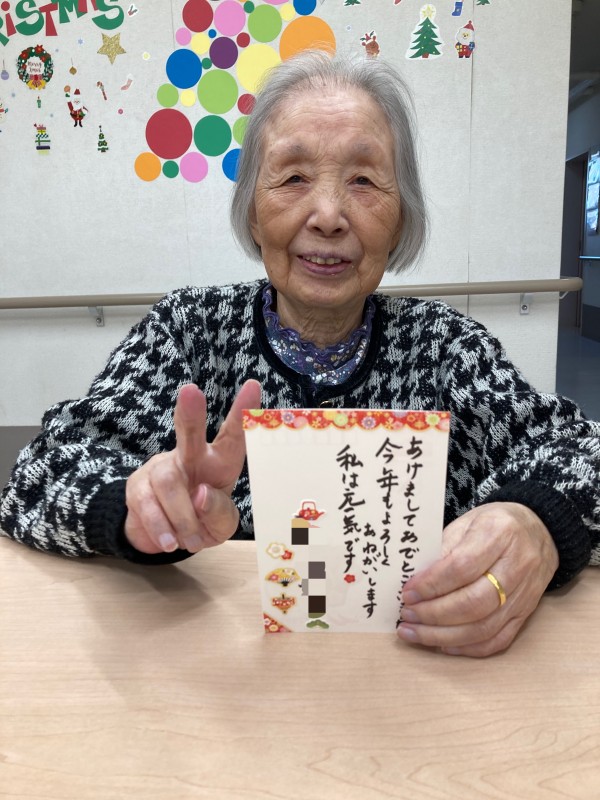 CHRISTMAS
Merry
あけましてあでとうござ
今年もよろしく
おねがいします
私は元気です